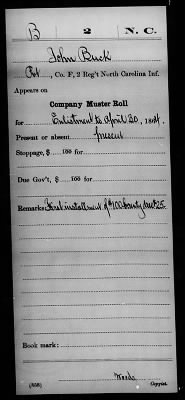 B 2 N. C.
John Buck
Pvt, Co. F, 2 Reg't North Carolina Inf.
Appears on
Company Muster Roll
for Enlistment to April 30, 1864.
Present or absent present
Stoppage, $ 100 for
Due Gov't, $ 100 for
Remarks: First installment of $100 bounty due $25
Book mark:
Woods
(358) Copyist.